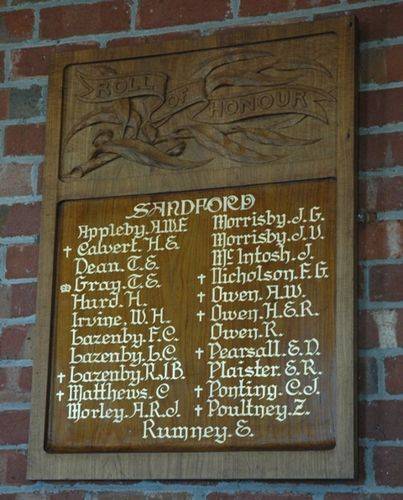 ROLL OF HONOUR
SANDFORD
Appleby. A.W.E
† Calvert. H.E.
Dean. T.E.
Gray. T.E.
Hurd. H.
Irvine. W.H.
Lazenby. F.C.
Lazenby. L.C.
† Lazenby. R.J.B.
† Matthews. C
Morley. A.R.J.
Morrisby. J.G.
Morrisby. J.V.
Mc Intosh. J.
† Nicholson. F.G.
† Owen. A.W.
† Owen. H.E.R.
Owen. R.
† Pearsall. E.V.
Plaister. E.R.
† Ponting. C.J.
† Poultney. Z.
Rumney. E.